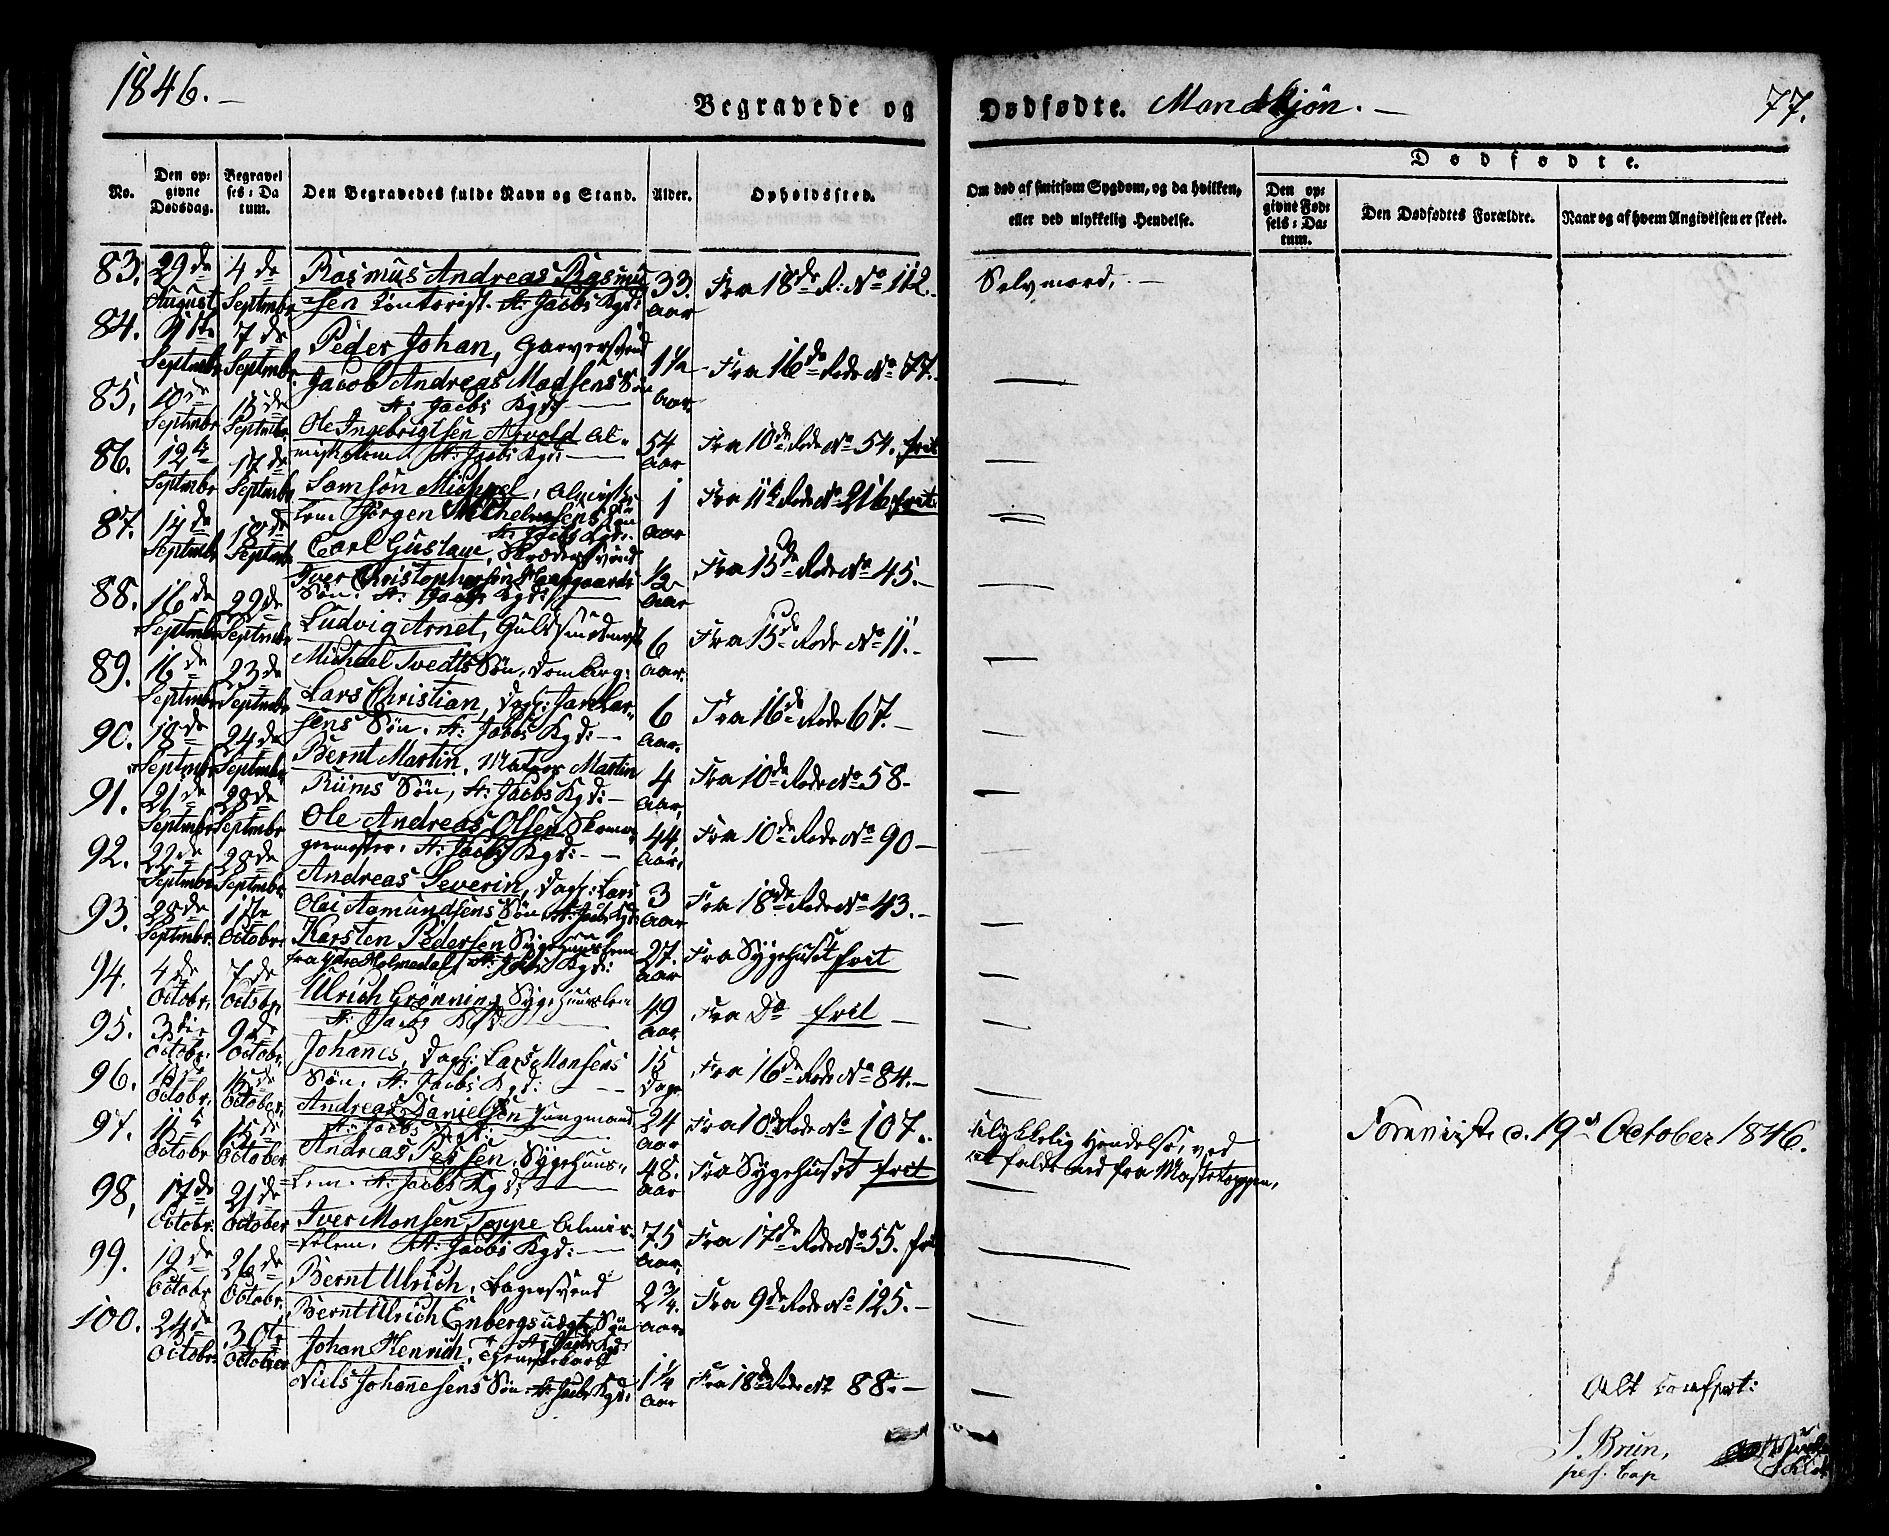 1846.
Begravede og
Dødfødte. Mandkjön.
77.
No.
Den op-
givne
Dødsdag.
Begravel
ses-Da
tum.
Den Begravedes fulde Navn og Stand.
Alder.
Opholdssted.
Om død af smitsom Sygdom, og da hvilken,
eller ved ulykkelig Hendelse.
Dødfødte.
Den op-
givne Fød-
sels-Da-
tum.
Den Dødfødtes Forældre.
Naar og af hvem Angivelsen er skeet.
83. 29de August 4de Septmbr Rasmus Andreas Rasmus
=sen Contorist. St: Jacobs Kgd: 33 Aar Fra 18de R: No 112. Selvmord.
84. Septmbr 7de Septmbr Peder Johan, Garversvend
Jacob Andreas Madsens Sön
St: Jacobs Kgd: 1½ Aar Fra 16de Rode No 77.
85, 10de Septmbr 15de Septmbr Ole Ingebrigtsen Arvold Al-
St: Jacobs Kgd: 54 Aar Fra 10de Rode No 54. frit
86. 12te Septmbr 17de Septmbr Samson Michael,
lem Jörgen Sön
St: Jacobs Kgd: 1 Aar Fra 11te Rode No 216 frit.
87. 14de Septmbr 18de Septmbr Carl Gustave, Skrædersvend
Iver Christophersen
Søn. St: Jacobs Kgd: ½ Aar Fra 15de Rode No 45.
88. 16de Septmbr 22de Septmbr Ludvig Arnet, Guldsmedmester
Michael Tvedts Sön, Domkirg: 6 Aar. Fra 15de Rode No 11.
89. 16de Septmbr 23de Septmbr Lars Christian, Dagk: Jan Lar-
sens Sön. St: Jacobs Kgd: 6 Aar. Fra 16de Rode 67.
90. 18de Septmbr 24de Septmbr Bernt Martin, Matros Martin
Rüms Sön, St: Jacobs Kgd: 4 Aar, Fra 10de Rode No 58.
91. 21de Septmbr 28de Septmbr Ole Andreas Olsen Skoma-
germester. St: Jacobs Kgd: 44 Aar. Fra 10de Rode No 90
92. 22de Septmbr 28de Septmbr Andreas Severin, Dagk: Lars
Olai Aamundsens Sön St: Jacobs Kgd: 3 Aar Fra 18de Rode No 43.
93. 28de Septmbr. 1ste Octobr Karsten Pedersen Sygehuuslem
fra Holmedal, St: Jacobs Kgd: 27. Aar Fra Sygehuset frit
94. 4de Octobr. 7de Octobr. Ulrich Grønning Sygehuuslem
St: Jacobs Kgd: 49 Aar. Fra Do frit
95. Octobr. 9de Octobr. Johannes, Dagk: Lars Monsens
Søn. St: Jacobs Kgd: 15 Dage Fra 16de Rode No 84.
96. Octobr. October. Andreas Danielsen Jungmand
St: Jacobs Kgd: 24 Aar Fra 10de Rode No 107. Ulykkelig Hendelse, ved
at falde ned fra Mastetoppen, 19de October 1846.
97. 11te Octobr 15de October Andreas Sygehuus-
lem. St: Jacobs Kgd: 48. Aar Fra Sygehuset frit
98, 17de Octobr. 21de October Iver Monsen Toppe Almis-
=selem. St: Jacobs Kgd: 75 Aar, Fra 17de Rode No 55. frit
99. 19de Octobr 26de Octobr. Bernt Ulrich, Bagersvend
Bernt Ulrich Enbergs uægte Sön
St: Jacobs Kgd: 2¾ Aar Fra 9de Rode No 125.
100. 24de Octobr. 30te October Johan Henrich, Tjenestekarl
Niels Johannesens Sön St: Jacobs Kgd: 1¼ Aar Fra 18de Rode No 88.
Alt
J. Brun,
res. Cap